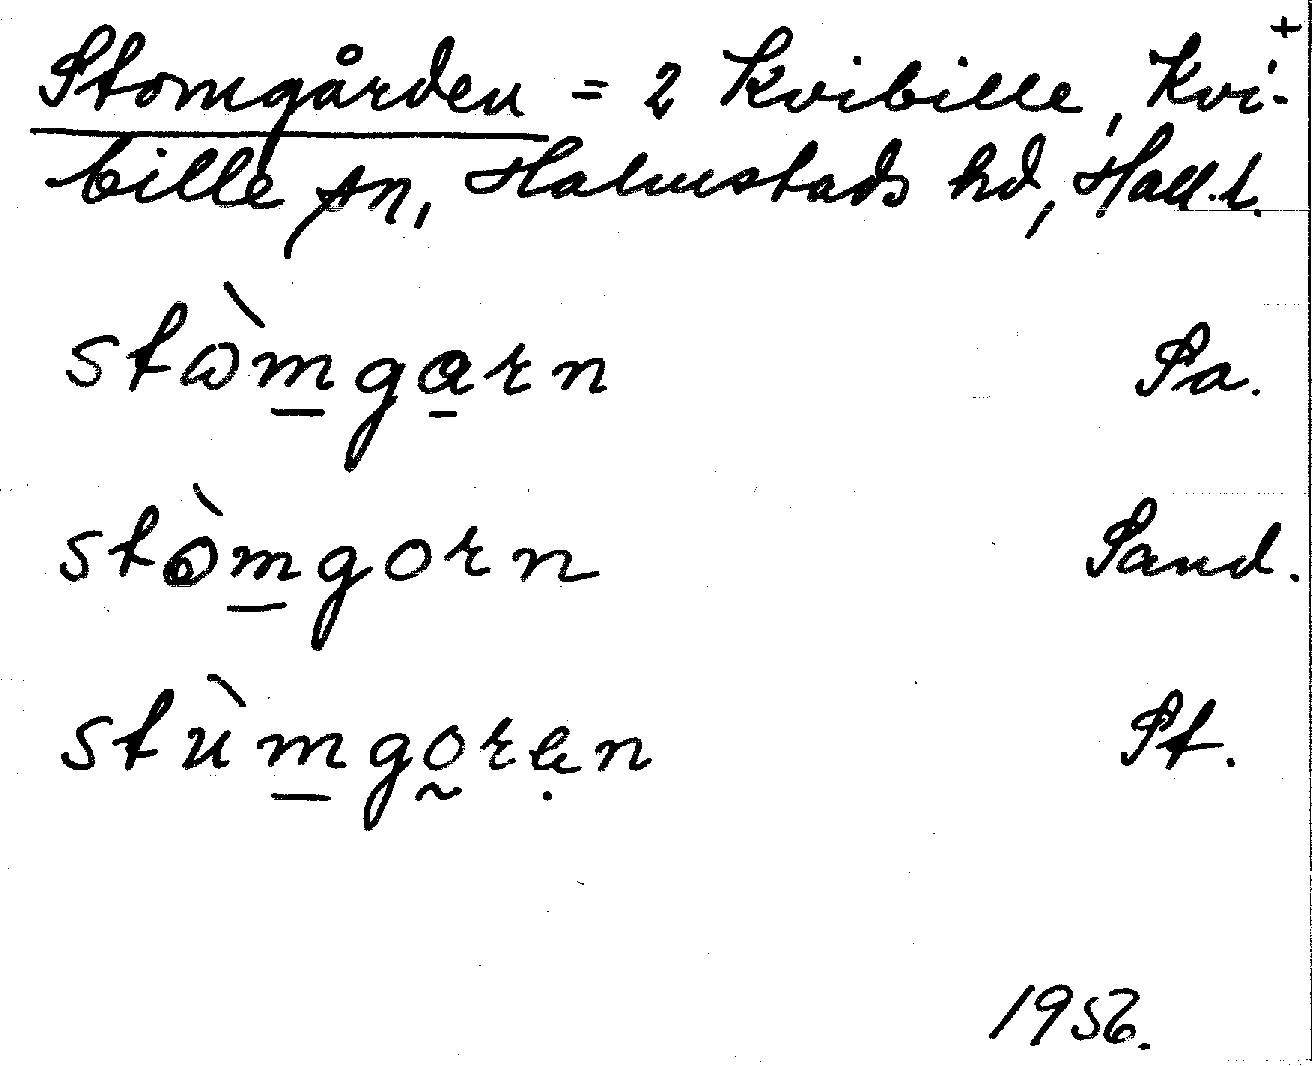 +
Stomgården = 2 Kvibille, Kvi-
bille sn, Halmstads hd, Hall.l.
stɷ̀m̲ga̲rn Sa.
stòm̲gorn Sand.
stùm̲go̰rẹn St.
1956.